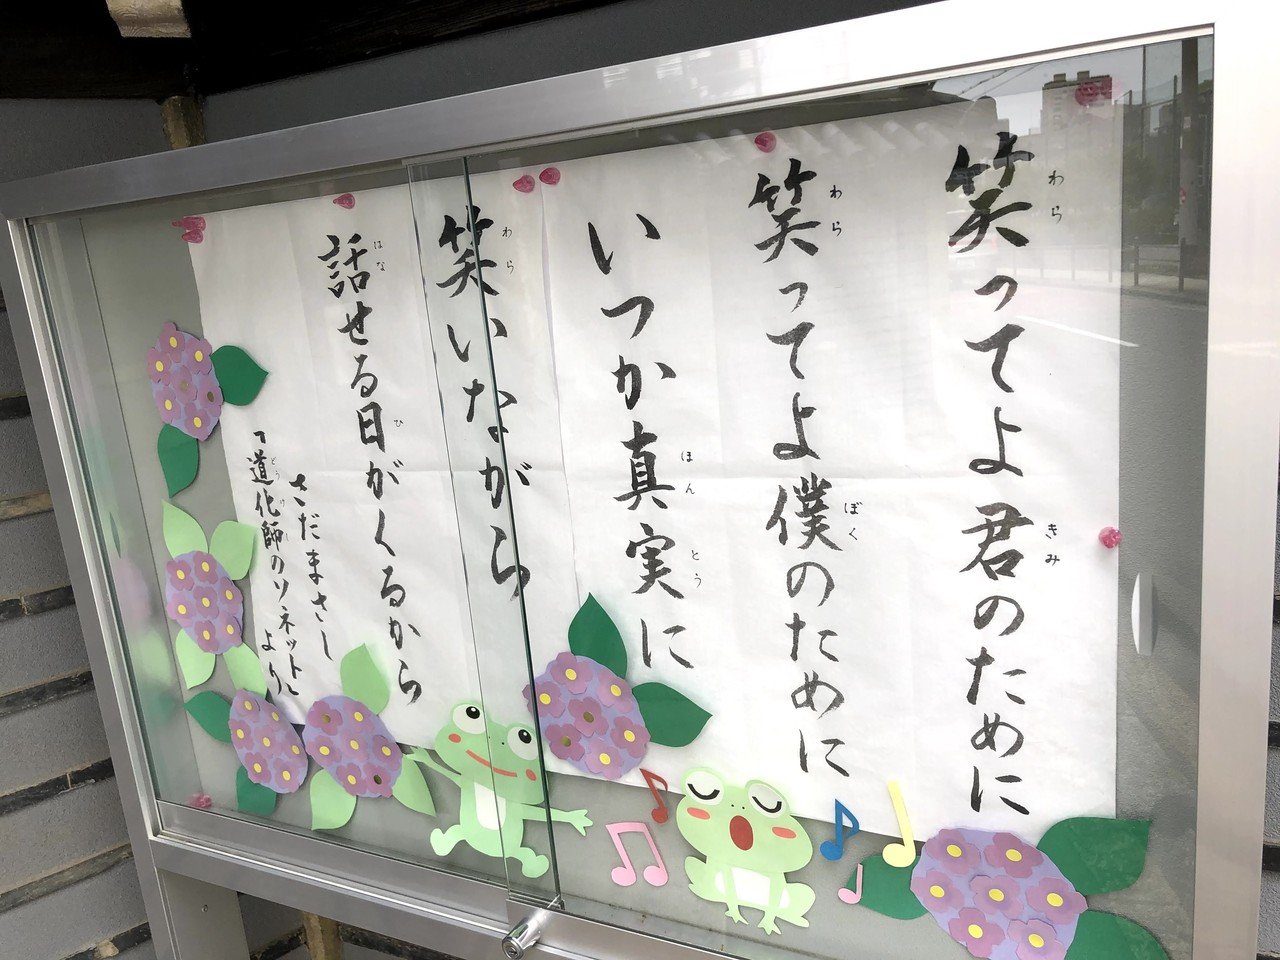 笑ってよ君のために
笑ってよ僕のために
いつか真実に
笑いながら
話せる日がくるから
さだまさし
「道化師のソネット」より